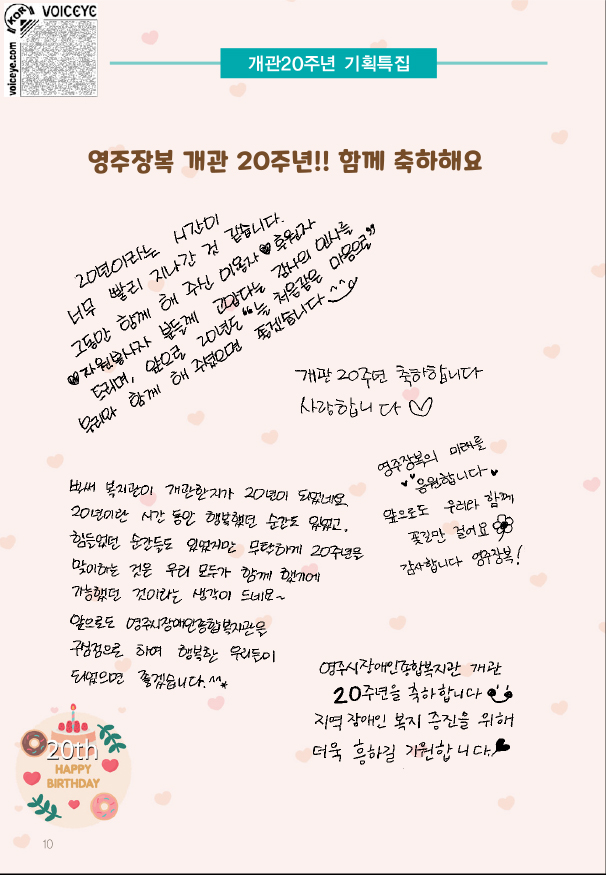 VOICEYE
KOR
voiceye.com
개관20주년 기획특집
영주장복 개관 20주년!! 함께 축하해요
20년이라는 시간이
너무 빨리 지나간 것 같습니다.
그동안 함께 해 주신 이용자♥후원자
♥자원봉사자 분들께 고맙다는 감사의 인사를
드리며, 앞으로 20년도 "늘 처음같은 마음으로"
우리와 함께 해 주셨으면 좋겠습니다
개관 20주년 축하합니다
사랑합니다 ♡
영주장복의 미래를
응원합니다
앞으로도 우리랑 함께
꽃길만 걸어요
감사합니다 영주장복!
벌써 복지관이 개관한지가 20년이 되었네요
20년이란 시간 동안 행복했던 순간도 있었고,
힘들었던 순간들도 있었지만 무탈하게 20주년을
맞이하는 것은 우리 모두가 함께 했기에
가능했던 것이라는 생각이 드네요~
앞으로도 영주시장애인종합복지관을
구심점으로 하여 행복한 우리들이
되었으면 좋겠습니다.^^*
영주시장애인종합복지관 개관
20주년을 축하합니다
지역 장애인 복지 증진을 위해
더욱 흥하길 기원합니다.♥
20th
HAPPY
BIRTHDAY
10